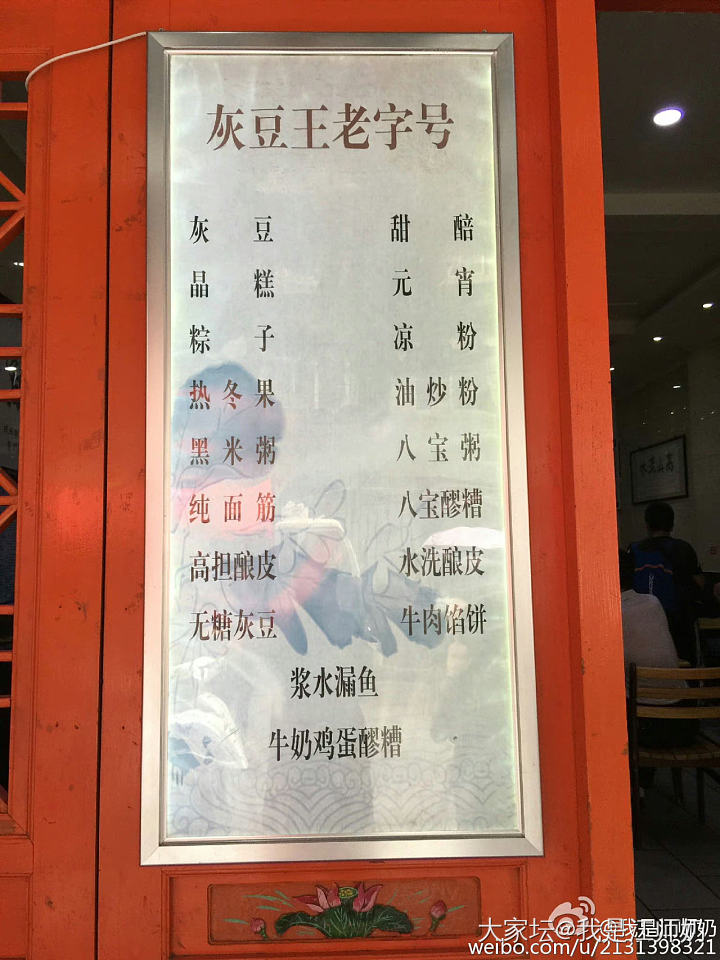 灰豆王老字号
灰豆 甜醅
晶糕 元宵
粽子 凉粉
热冬果 油炒粉
黑米粥 八宝粥
纯面筋 八宝醪糟
高担酿皮 水洗酿皮
无糖灰豆 牛肉馅饼
浆水漏鱼
牛奶鸡蛋醪糟
大家坛@我是江师奶
weibo.com/u/2131398321